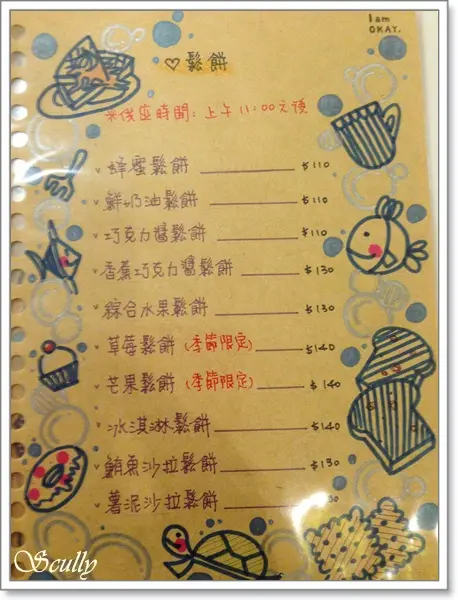 I am
OKAY.
♡鬆餅
※供應時間：上午11:00之後
蜂蜜鬆餅 $110
鮮奶油鬆餅 $110
巧克力醬鬆餅 $110
香蕉巧克力醬鬆餅 $130
綜合水果鬆餅 $130
草莓鬆餅 (季節限定) $140
芒果鬆餅 (季節限定) $140
冰淇淋鬆餅 $140
鮪魚沙拉鬆餅 $130
薯泥沙拉鬆餅 30
Scully